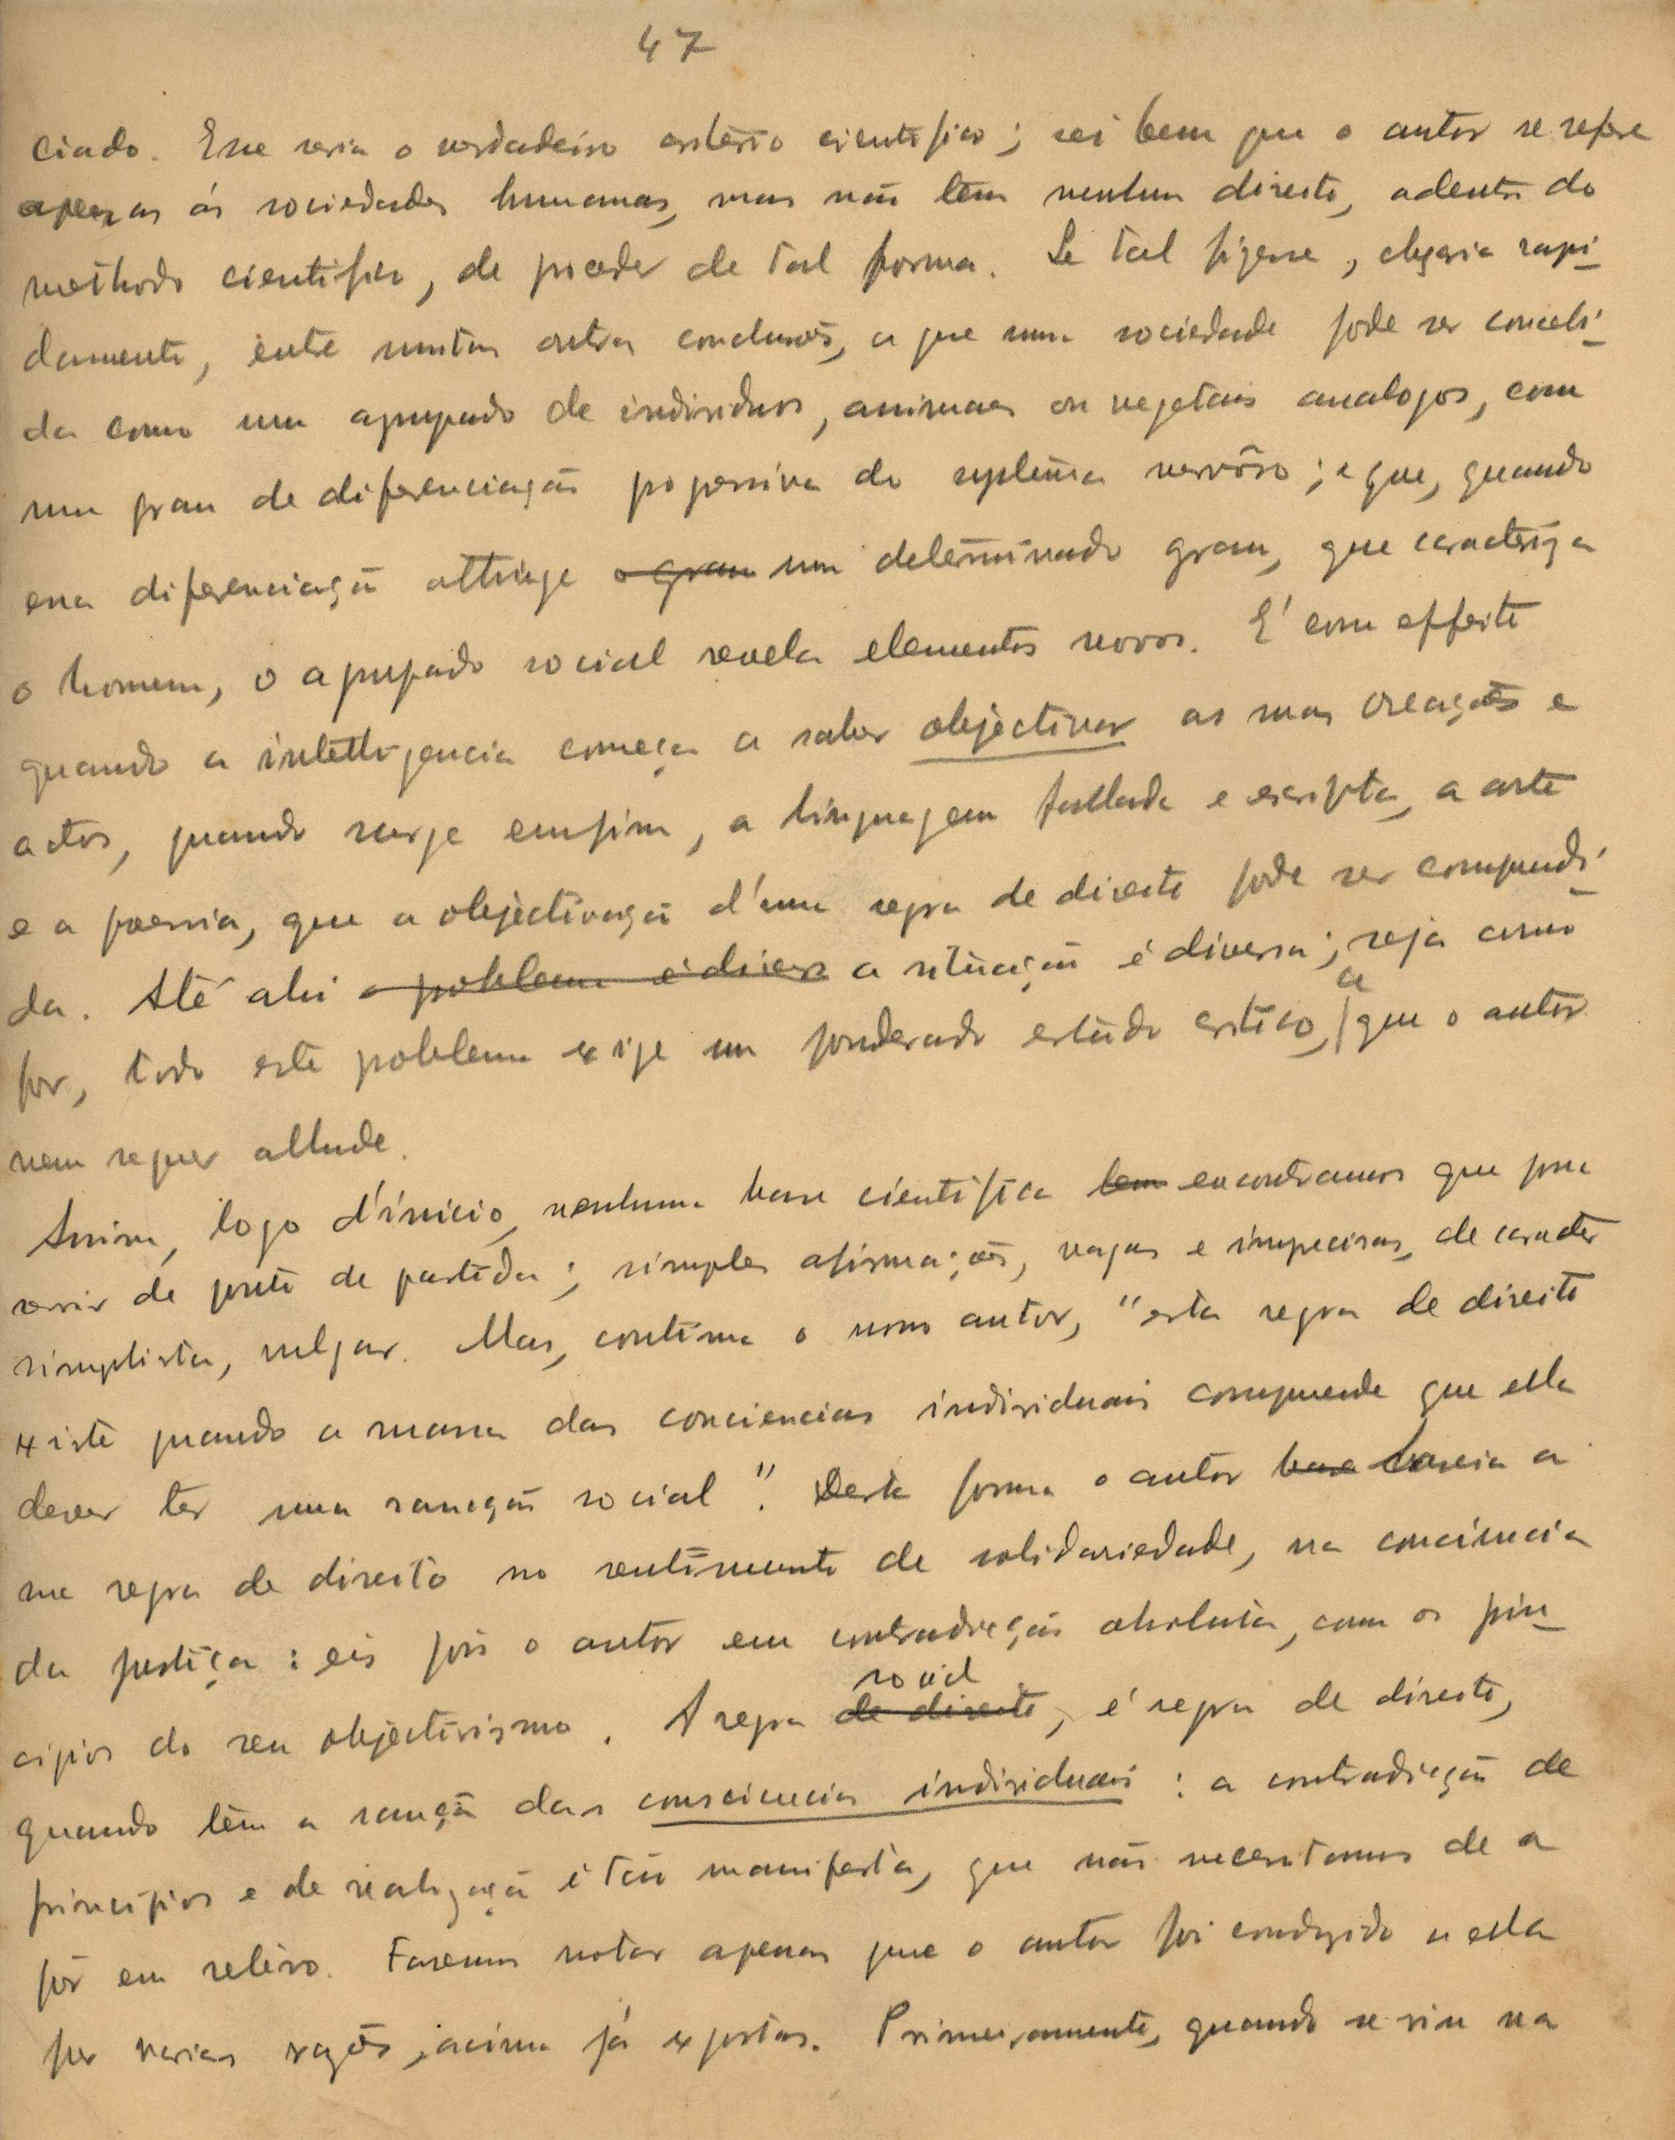 47
ciado. Esse seria o verdadeiro criterio cientifico; sei bem que o autor se refere
apenas ás sociedades humanas, mas não tem nenhum direito, adentro do
methodo cientifico, de proceder de tal forma. Se tal fizesse, chegaria rapi-
damente, entre muitas outras conclusões, a que uma sociedade pode ser concebi-
da como um agrupado de individuos, animaes ou vegetais analogos, com
um grau de diferenciação progressiva do systema nervôso; e que, quando
essa diferenciação attinge o grau um determinado grau, que caracteriza
o homem, o agrupado social revela elementos novos. E' com effeito
quando a intelligencia começa a saber objectivar as suas creações e
actos, quando surge emfim, a linguagem fallada e escripta, a arte
e a poesia, que a objectivação d'uma regra de direito pode ser comprendi-
da. Até ahi o problema é diverso a situação é diversa; seja como
fôr, todo este problema exige um ponderado estudo critico, a que o autor
nem sequer allude.
Assim, logo d'inicio, nenhuma base cientifica tem encontramos que possa
servir de ponto de partida; simples afirmações, vagas e imprecisas, de caracter
simplista, vulgar. Mas, continua o nosso autor, "esta regra de direito
existe quando a massa das conciencias individuais comprende que ella
dever ter uma sancção social". Desta forma o autor base baseia a
sua regra de direito no sentimento de solidariedade, na conciencia
da justiça: eis pois o autor em contradicção absoluta, com os prin-
cipios do seu objectivismo. A regra de direito social, é regra de direito,
quando têm a sanção das consciencias individuais: a contradicção de
principios e de realização é tão manifesta, que não necessitamos de a
pôr em relêvo. Faremos notar apenas que o autor foi conduzido a ella
por varias razões, acima já expostas. Primeiramente, quando se viu na